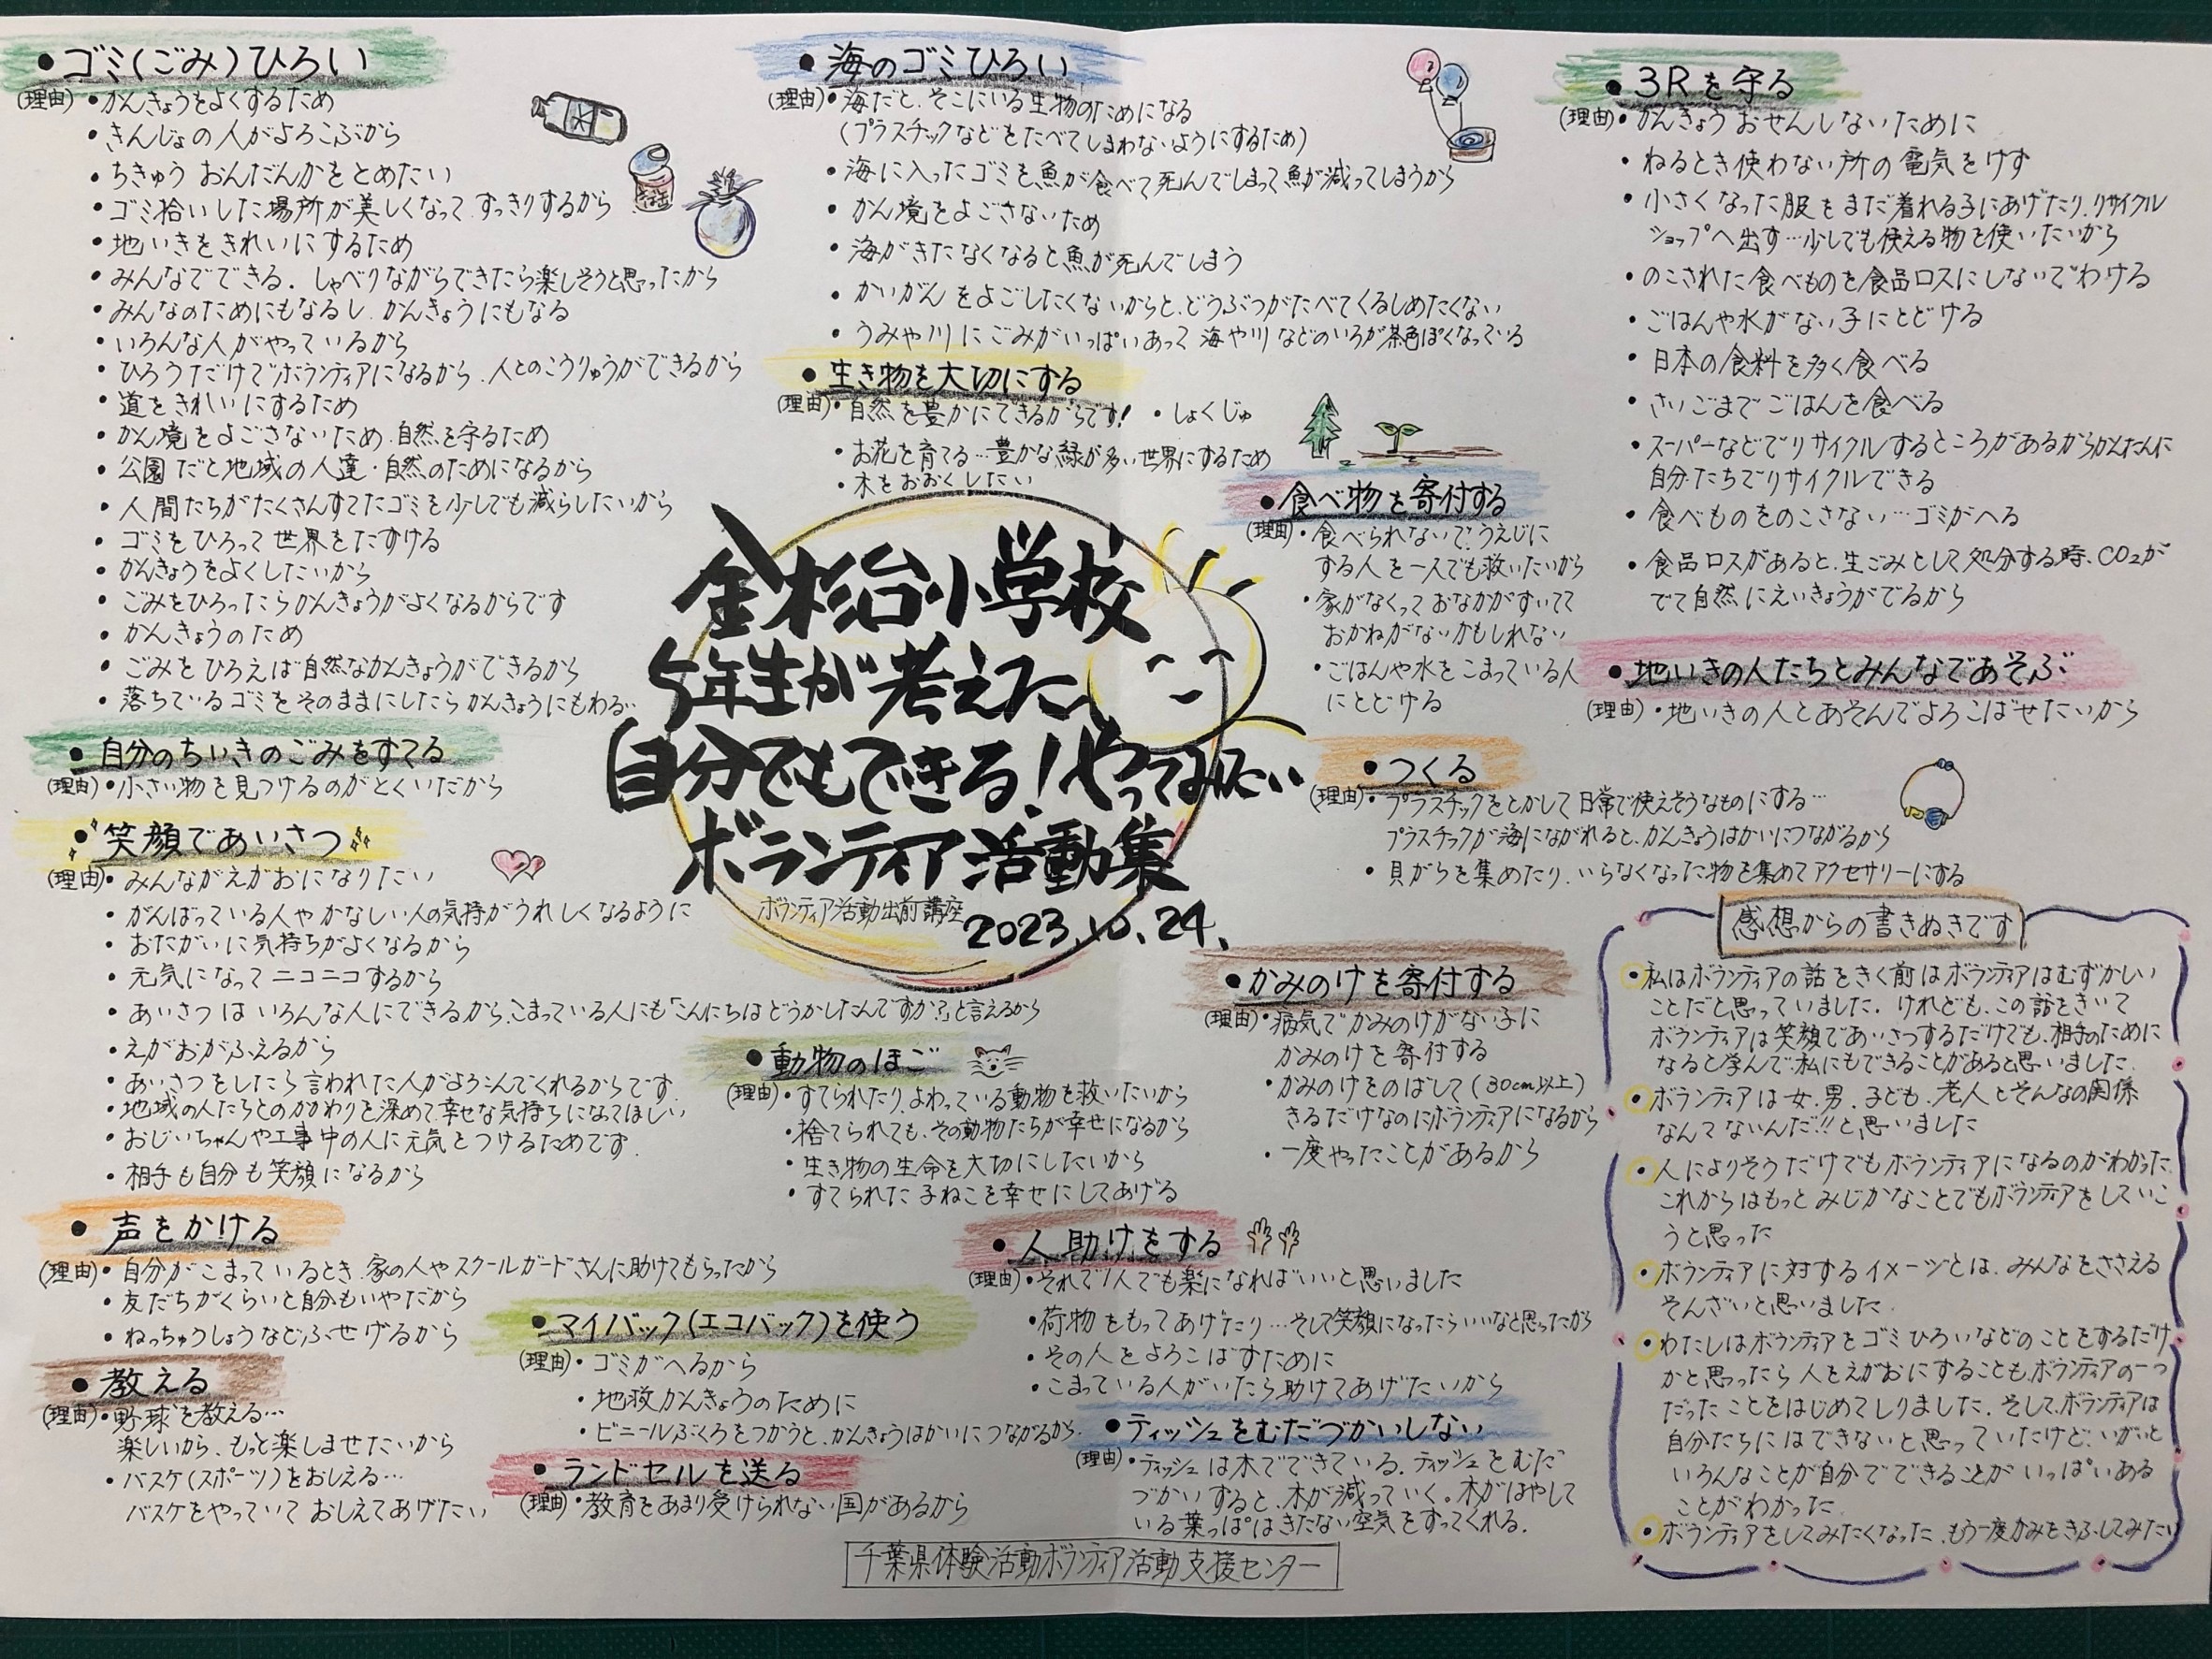 金杉台小学校
5年生が考えた
自分でもできる!やってみたい
ボランティア活動集
ボランティア活動出前講座
2023.10.24.
•ゴミ(ごみ)ひろい
(理由)•かんきょうをよくするため
•きんじょの人がよろこぶから
•ちきゅう おんだんかをとめたい
•ゴミ拾いした場所が美しくなって、すっきりするから
•地いきをきれいにするため
•みんなでできる.しゃべりながらできたら楽しそうと思ったから
•みんなのためにもなるし、かんきょうにもなる
•いろんな人がやっているから
•ひろうだけでボランティアになるから、人とのこうりゅうができるから
•道をきれいにするため
•かん境をよごさないため、自然を守るため
•公園だと地域の人達・自然のためになるから
•人間たちがたくさんすてたゴミを少しでも減らしたいから
•ゴミをひろって世界をたすける
•かんきょうをよくしたいから
•ごみをひろったらかんきょうがよくなるからです
•かんきょうのため
•ごみをひろえば自然なかんきょうができるから
•落ちているゴミをそのままにしたらかんきょうにもわる…
•自分のちいきのごみをすてる
(理由)•小さい物を見つけるのがとくいだから
•笑顔であいさつ
(理由)•みんながえがおになりたい
•がんばっている人やかなしい人の気持がうれしくなるように
•おたがいに気持ちがよくなるから
•元気になってニコニコするから
•あいさつはいろんな人にできるから、こまっている人にも「こんにちはどうかしたんですか?」と言えるから
•えがおがふえるから
•あいさつをしたら言われた人がよろこんでくれるからです.
•地域の人たちとのかかわりを深めて、幸せな気持ちになってほしい
•おじいちゃんや工事中の人に元気をつけるためです.
•相手も自分も笑顔になるから
•声をかける
(理由)•自分がこまっているとき、家の人やスクールガードさんに助けてもらったから
•友だちがくらいと自分もいやだから
•ねっちゅうしょうなどふせげるから
•教える
(理由)•野球を教える…
楽しいから、もっと楽しませたいから
•バスケ(スポーツ)をおしえる…
バスケをやっていておしえてあげたい
•海のゴミひろい
(理由)•海だと、そこにいる生物のためになる
(プラスチックなどをたべてしまわないようにするため)
•海に入ったゴミを魚が食べて死んでしまって魚が減ってしまうから
•かん境をよごさないため
•海がきたなくなると魚が死んでしまう
•かいがんをよごしたくないからと、どうぶつがたべてくるしめたくない
•うみや川にごみがいっぱいあって海や川などのいろが茶色ぽくなっている
•生き物を大切にする
(理由)•自然を豊かにできるからです! •しょくじゅ
•お花を育てる…豊かな緑が多い世界にするため
•木をおおくしたい
•食べ物を寄付する
(理由)•食べられないで、うえじに
する人を一人でも救いたいから
•家がなくっておなかがすいてて
おかねがないかもしれない
•ごはんや水をこまっている人
にとどける
•3Rを守る
(理由)•かんきょうおせんしないために
•ねるとき使わない所の電気をけす
•小さくなった服をまだ着れる子にあげたり、リサイクル
ショップへ出す…少しでも使える物を使いたいから
•のこされた食べものを食品ロスにしないでわける
•ごはんや水がない子にとどける
•日本の食料を多く食べる
•さいごまでごはんを食べる
•スーパーなどでリサイクルするところがあるからかんたんに
自分たちでリサイクルできる
•食べものをのこさない…ゴミがへる
•食品ロスがあると、生ごみとして処分する時、CO2が
でて自然にえいきょうがでるから
•地いきの人たちとみんなであそぶ
(理由)•地いきの人とあそんでよろこばせたいから
•つくる
(理由)•プラスチックをとかして日常で使えそうなものにする…
プラスチックが海にながれると、かんきょうはかいにつながるから
•貝がらを集めたり、いらなくなった物を集めてアクセサリーにする
•かみのけを寄付する
(理由)•病気でかみのけがない子に
かみのけを寄付する
•かみのけをのばして(30cm以上)
きるだけなのにボランティアになるから
•一度やったことがあるから
•動物のほご
(理由)•すてられたり、よわっている動物を救いたいから
•捨てられても、その動物たちが幸せになるから
•生き物の生命を大切にしたいから
•すてられた子ねこを幸せにしてあげる
•人助けをする
(理由)•それで1人でも楽になればいいと思いました
•荷物をもってあげたり…そして笑顔になったらいいなと思ったから
•その人をよろこばすために
•こまっている人がいたら助けてあげたいから
•マイバック(エコバック)を使う
(理由)•ゴミがへるから
•地救かんきょうのために
•ビニールぶくろをつかうと、かんきょうはかいにつながるから.
•ランドセルを送る
(理由)•教育をあまり受けられない国があるから
•ティッシュをむだづかいしない
(理由)•ティッシュは木でできている.ティッシュをむだ
づかいすると、木が減っていく。木がはやして
いる葉っぱはきたない空気をすってくれる.
感想からの書きぬきです
•私はボランティアの話をきく前はボランティアはむずかしい
ことだと思っていました.けれども、この話をきいて
ボランティアは笑顔であいさつするだけでも、相手のために
なると学んで、私にもできることがあると思いました.
•ボランティアは女、男、子ども、老人とそんなの関係
なんてないんだ!!と思いました
•人によりそうだけでもボランティアになるのがわかった.
これからはもっとみじかなことでもボランティアをしていこ
うと思った
•ボランティアに対するイメージとは、みんなをささえる
そんざいと思いました.
•わたしはボランティアをゴミひろいなどのことをするだけ
かと思ったら人をえがおにすることも、ボランティアの一つ
だったことをはじめてしりました.そして、ボランティアは
自分たちにはできないと思っていたけど、いがいと
いろんなことが自分でできることがいっぱいある
ことがわかった.
•ボランティアをしてみたくなった.もう一度かみをきふしてみたい
千葉県体験活動ボランティア活動支援センター